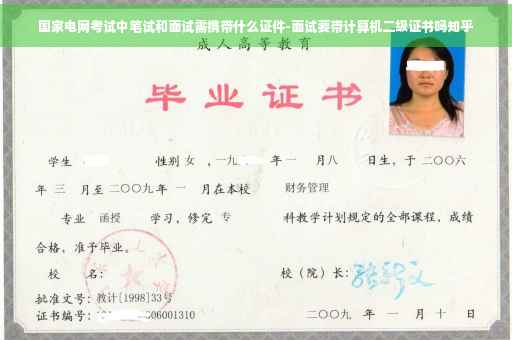 国家电网考试中笔试和面试需携带什么证件-面试要带计算机二级证书吗知乎
成人高等教育
毕业证书
学生 性别 女 ，一九 年 一 月 八 日生，于 二〇〇六
年 三 月至 二〇〇九 年 一 月在本校 财务管理
专业 函授 学习，修完 专 科教学计划规定的全部课程，成绩
合格，准予毕业。
校 名： 校（院）长：
批准文号：教计[1998]33号
证书编号： 06001310 二〇〇九 年 一 月 十 日